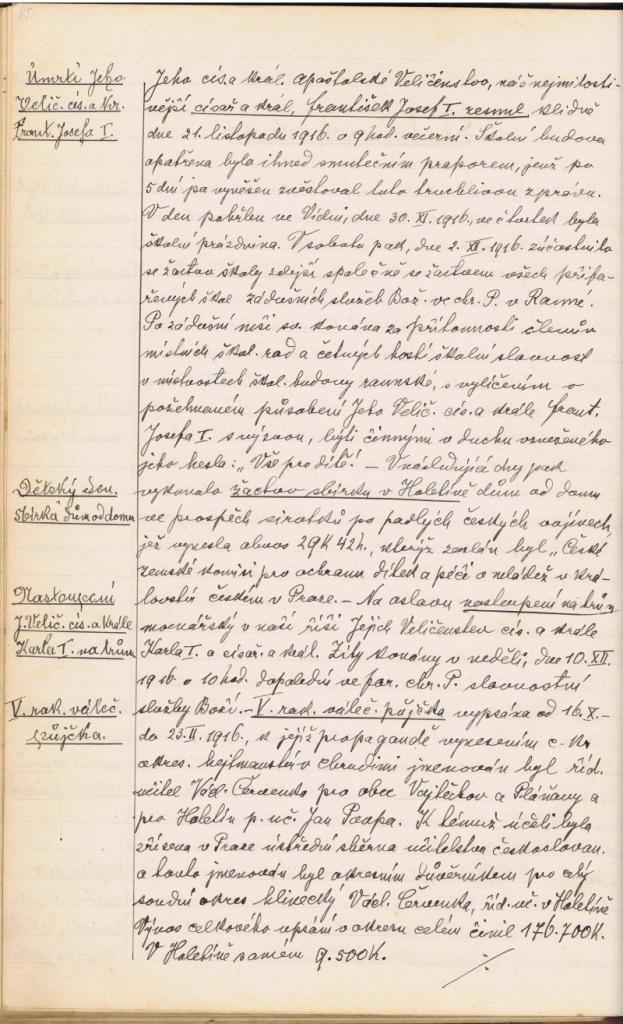 85.
Úmrtí Jeho
Velič. cís. a kr.
Frant. Josefa I.
Jeho cís. a král. apoštolské Veličenstvo, náš nejmilosti-
vější císař a král, František Josef I. zesnul klidně
dne 21. listopadu 1916 o 9 hod. večerní. Školní budova
opatřena byla ihned smutečním praporem, jenž po
5 dní pa vyvěšen zvěstoval tuto truchlivou zprávu.
V den pohřbu ve Vídni, dne 30. XI. 1916, ve čtvrtek byla
školní prázdnina. V sobotu pak, dne 2. XII. 1916. zúčastnilo
se žactvo školy zdejší společně se žactvem všech přifa-
řených škol zádušních služeb Bož. ve chr. P. v Ranné.
Po zádušní mši sv. konána za přítomnosti členův
místních škol. rad a četných hostí školní slavnost
v místnostech škol. budovy rannské, s vylíčením o
požehnaném působení Jeho Velič. cís. a krále Frant.
Josefa I. s výzvou, býti činnými v duchu vznešeného
jeho hesla: „Vše pro dítě! – V následující dny pak
Dětský den.
Sbírka dům od domu
vykonalo žactvo sbírku v Holetíně dům od domu
ve prospěch sirotků po padlých českých vojínech,
jež vynesla obnos 29 K 42 h., kterýž zaslán byl „České
zemské komisi pro ochranu dítek a péči o mládež v krá-
lovství českém v Praze. – Na oslavu nastoupení na trůn
Nastoupení
J. Velič. cís. a krále
Karla I. na trůn
monářský v naší říši Jejich Veličenstev cís. a krále
Karla I. a císař. a král. Zity konány v neděli, dne 10. XII.
1916 o 10 hod. dopolední ve far. chr. P. slavnostní
služby Boží. – V. rak. váleč. půjčka vypsána od 16. X. –
V. rak. váleč.
půjčka.
do 23. II. 1916, k jejíž propagandě vynesením c. kr.
okres. hejtmanství v Chrudimi jmenován byl říd.
učitel Václ. Červenka pro obce Vojtěchov a Pláňavy a
pro Holetín p. uč. Jan
K témuž účeli byla
zřízena v Praze ústřední sběrna učitelstva českoslovan.
a touto jmenován byl okresním důvěrníkem pro celý
soudní okres hlinecký Václ. Červenka, říd. uč. v Holetíně
Výnos celkového upsání v okresu celém činil 176.700 K.
V Holetíně samém 9.500 K.
./.